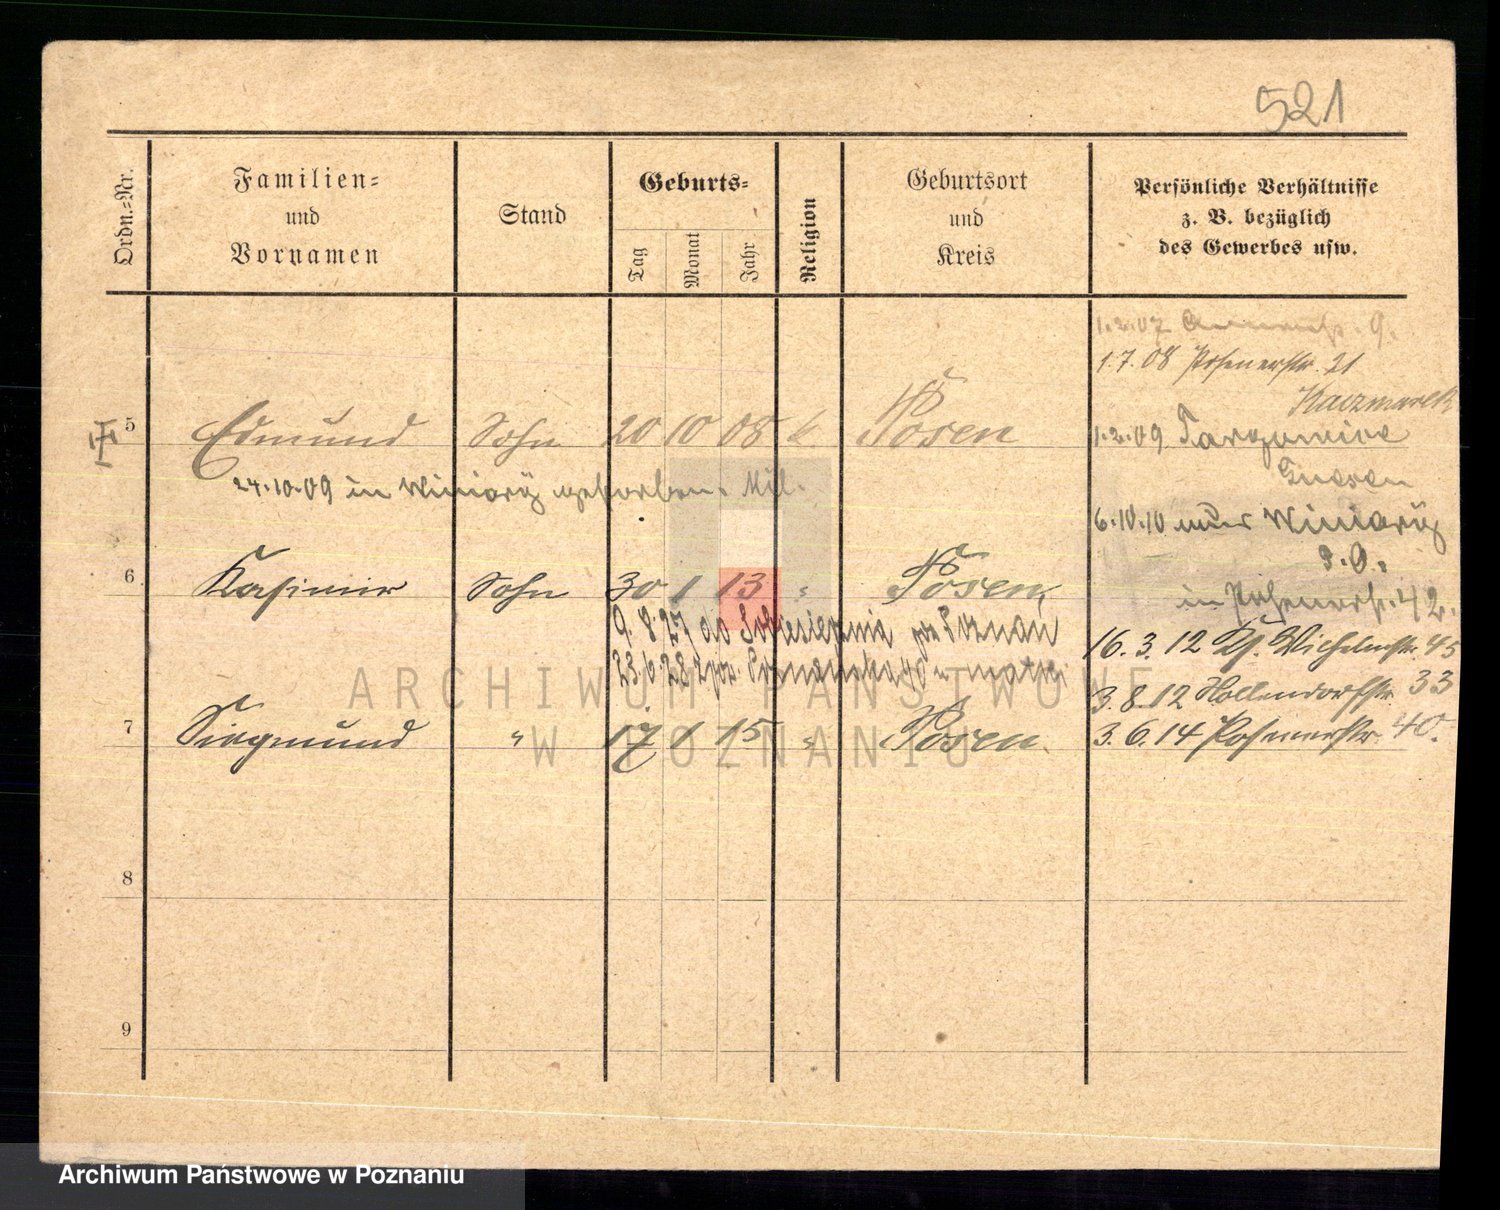 521
Ordn.=Nr.
Familien=
und
Vornamen
Stand
Geburts=
Tag
Monat
Jahr
Religion
Geburtsort
und
Kreis
Persönliche Verhältnisse
z. B. bezüglich
des Gewerbes usw.
1.2.07 9.
1.7.08 Posenerstr. 21
Kaczmarek
5 Edmund Sohn 20 10 08 k. Posen
1.2.09
24.10.09 in Winiary gestorben.
6.10.10 Winiary
in Posenerstr. 42.
6 Kasimir Sohn 30 1 13 " Posen
9.8.27 do Poznań
23.6.28 Poznańska
16.3.12 Wilhelmstr. 45
3.8.12 Hollendorfstr. 33
7 Siegmund " 17 1 15 " Posen.
3.6.14 Posenerstr. 40.
8
9
ARCHIWUM PAŃSTWOWE
W POZNANIU
Archiwum Państwowe w Poznaniu